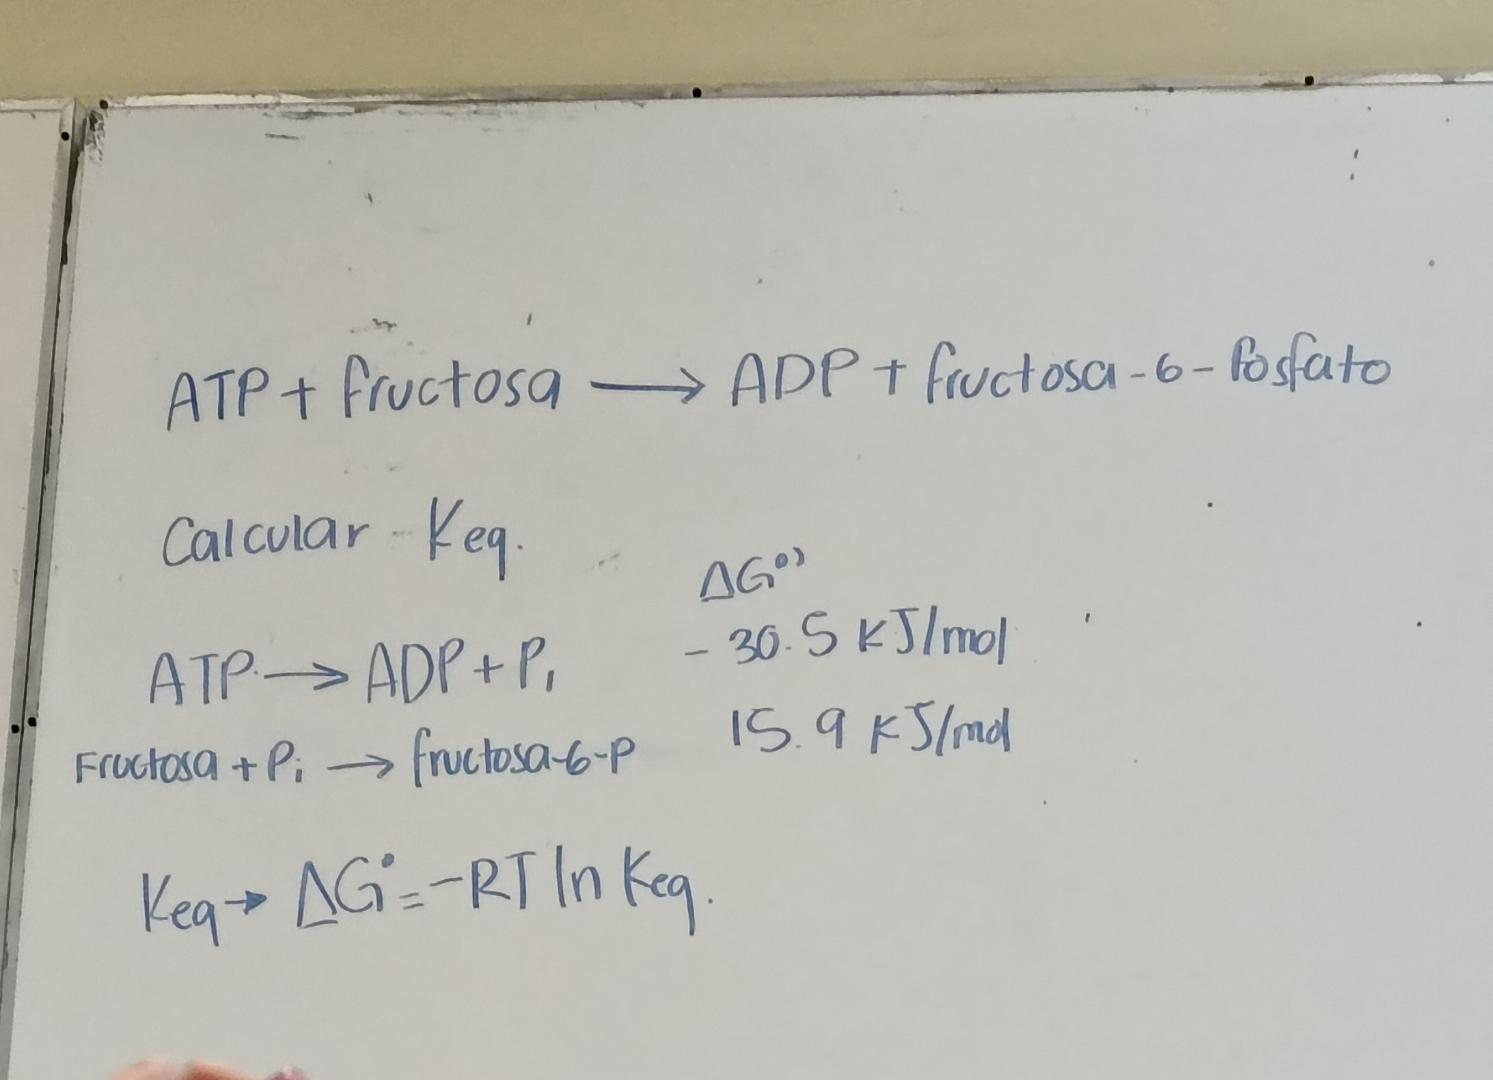 ATP + fructosa → ADP + fructosa-6-fosfato
Calcular Keq.
ΔG°'
ATP → ADP + Pi -30.5 KJ/mol
Fructosa + Pi → fructosa-6-P 15.9 KJ/mol
Keq → ΔG° = -RT ln Keq.